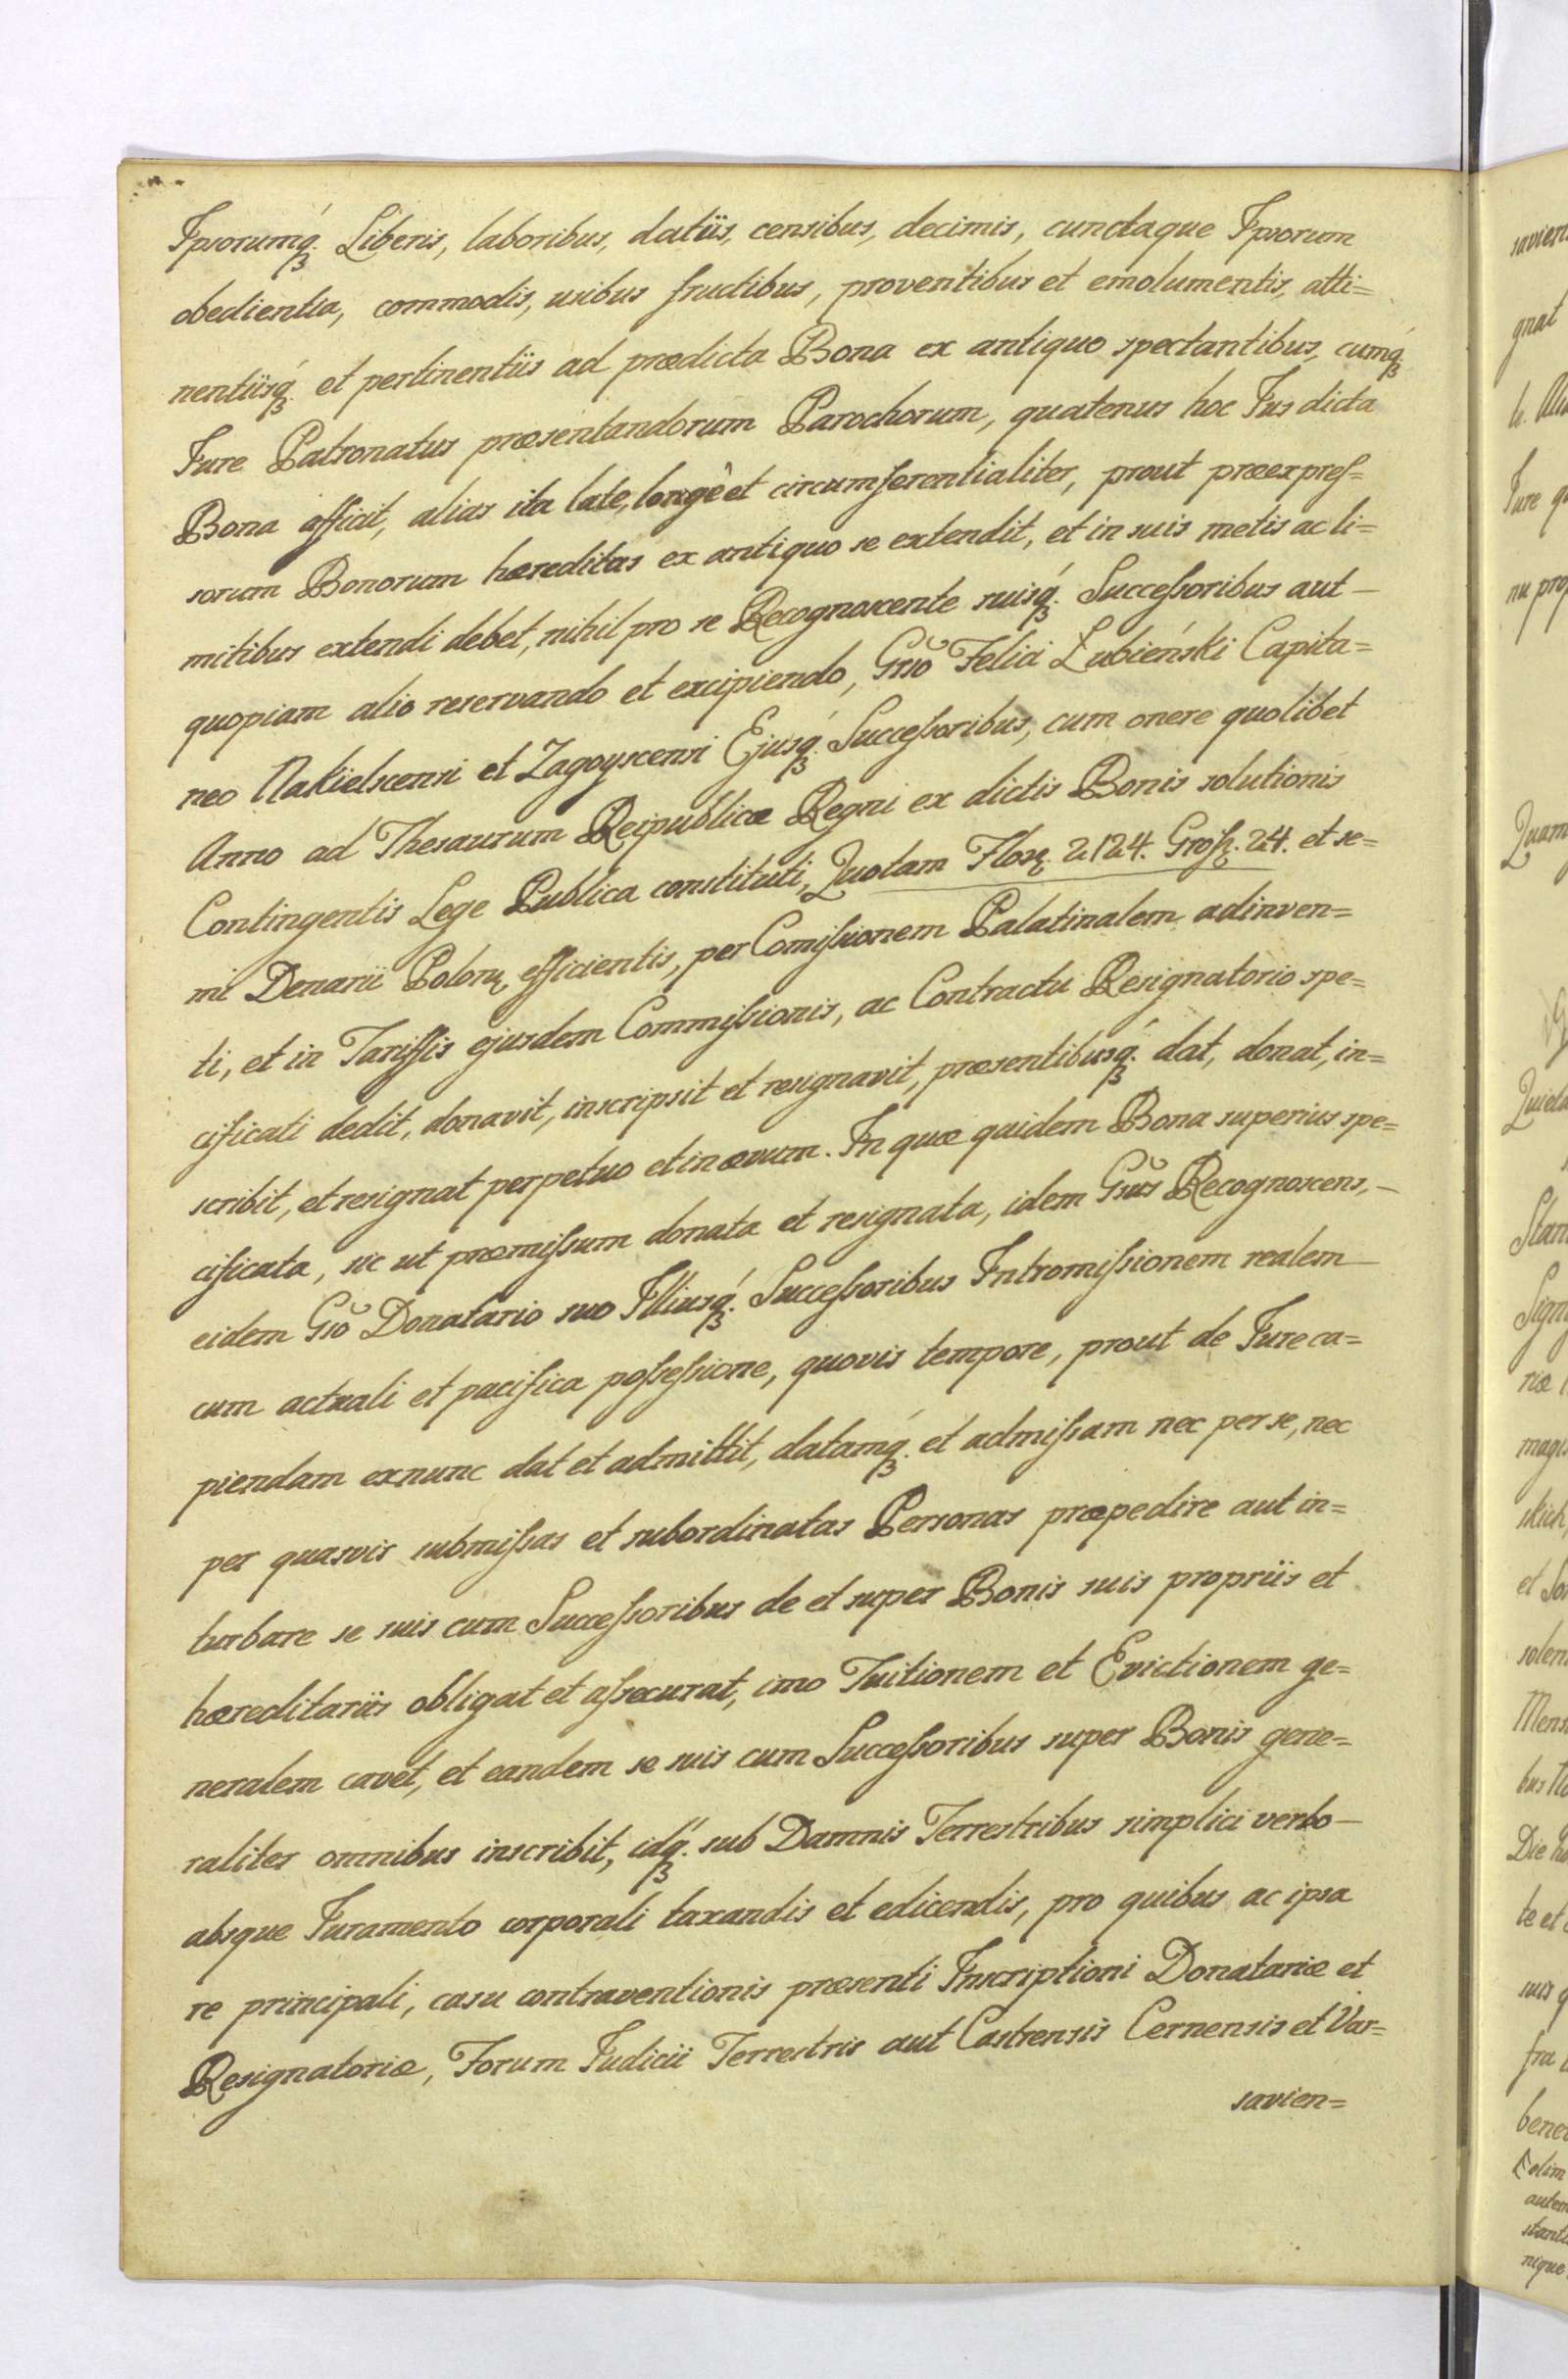 Ipsorumq́ꝫ Liberis, laboribus, datiis, censibus, decimis, cunctaque Ipsorum
obedientia, commodis, usibus fructibus, proventibus et emolumentis, atti=
nentiisq́ꝫ et pertinentiis ad prædicta Bona ex antiquo spectantibus, cumq́ꝫ
Jure Patronatus præsentandorum Parochorum, quatenus hoc Jus dicta
Bona afficit, alias ita late, longè et circumferentialiter, prout præexpreſ=
sorum Bonorum hæreditas ex antiquo se extendit, et in suis metis ac li=
mitibus extendi debet, nihil pro se Recognoscente suisq́ꝫ Succeſsoribus aut —
quopiam alio reservando et excipiendo, Gnso Felici Łubieński Capita=
neo Nakielscensi et Zagoyscensi Ejusq́ꝫ Succeſsoribus, cum onere quolibet
Anno ad Thesaurum Reipublicæ Regni ex dictis Bonis solutionis
Contingentis Lege Publica constituti, Quotam Floꝝ. 2124. Groſs. 24. et se=
mi Denarii Poloꝝ efficientis, per Comiſsionem Palatinalem adinven=
ti, et in Tariffis ejusdem Commiſsionis, ac Contractu Resignatorio spe=
cificati dedit, donavit, inscripsit et resignavit, præsentibusq́ꝫ dat, donat, in=
scribit, et resignat perpetuo et in ævum. In quæ quidem Bona superius spe=
cificata, sic ut præmiſsum donata et resignata, idem Gsus Recognoscens, —
eidem Gso Donatario suo Illiusq́ꝫ Succeſsoribus Intromiſsionem realem —
cum actuali et pacifica poſseſsione, quovis tempore, prout de Jure ca=
piendam exnunc dat et admittit, datamq́ꝫ et admiſsam nec per se, nec
per quasvis submiſsas et subordinatas Personas præpedire aut in=
turbare se suis cum Succeſsoribus de et super Bonis suis propriis et
hæreditariis obligat et aſsecurat, imo Tuitionem et Evictionem ge=
neralem cavet, et eandem se suis cum Succeſsoribus super Bonis gene=
raliter omnibus inscribit, idq́ꝫ sub Damnis Terrestribus simplici verbo —
absque Juramento corporali taxandis et edicendis, pro quibus ac ipsa
re principali, casu contraventionis præsenti Inscriptioni Donatariæ et
Resignatoriæ, Forum Judicii Terrestris aut Castrensis Cernensis et Var=
savien=